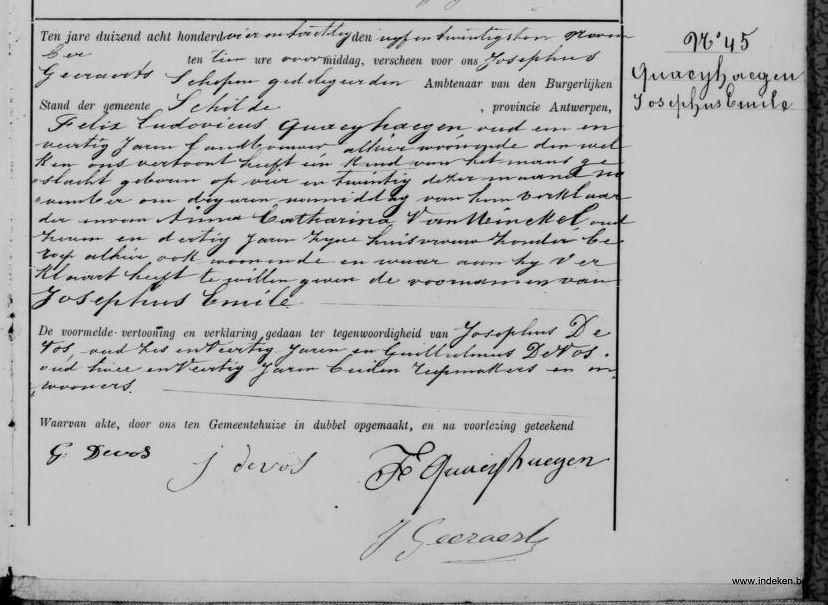 Ten jare duizend acht honderd vier en tachtig den vyf en twintigsten Novem
ber ten tien ure voormiddag, verscheen voor ons Josephus
Geeraerts Schepen gedelegeerden Ambtenaar van den Burgerlijken
Stand der gemeente Schilde , provincie Antwerpen,
Felix Ludovicus Quaeyhaegen oud een en
veertig Jaren Landbouwer alhier woonende den wel
ken ons vertoont heeft een Kind van het mans ge
slacht geboren op vier en twintig dezer maand no
vember om dry uren namiddag van hem verklaar
der en van Anna Catharina Van Meinckel oud
en dertig Jaren zyne huisvrouw zonder be
roep alhier ook woonende en waar aan hy Ver
klaart heeft te willen geven de voornamen van
Josephus Emile
De voormelde vertooning en verklaring gedaan ter tegenwoordigheid van Josephus De
Vos, oud en Veertig Jaren en Guillielmus De Vos
oud twee en Veertig Jaren beiden en in
wooners.
Waarvan akte, door ons ten Gemeentehuize in dubbel opgemaakt, en na voorlezing geteekend
G. Devos
J devos
F Quaeyhaegen
J Geeraerts
N° 45
Quaeyhaegen
Josephus Emile
www.indeken.be